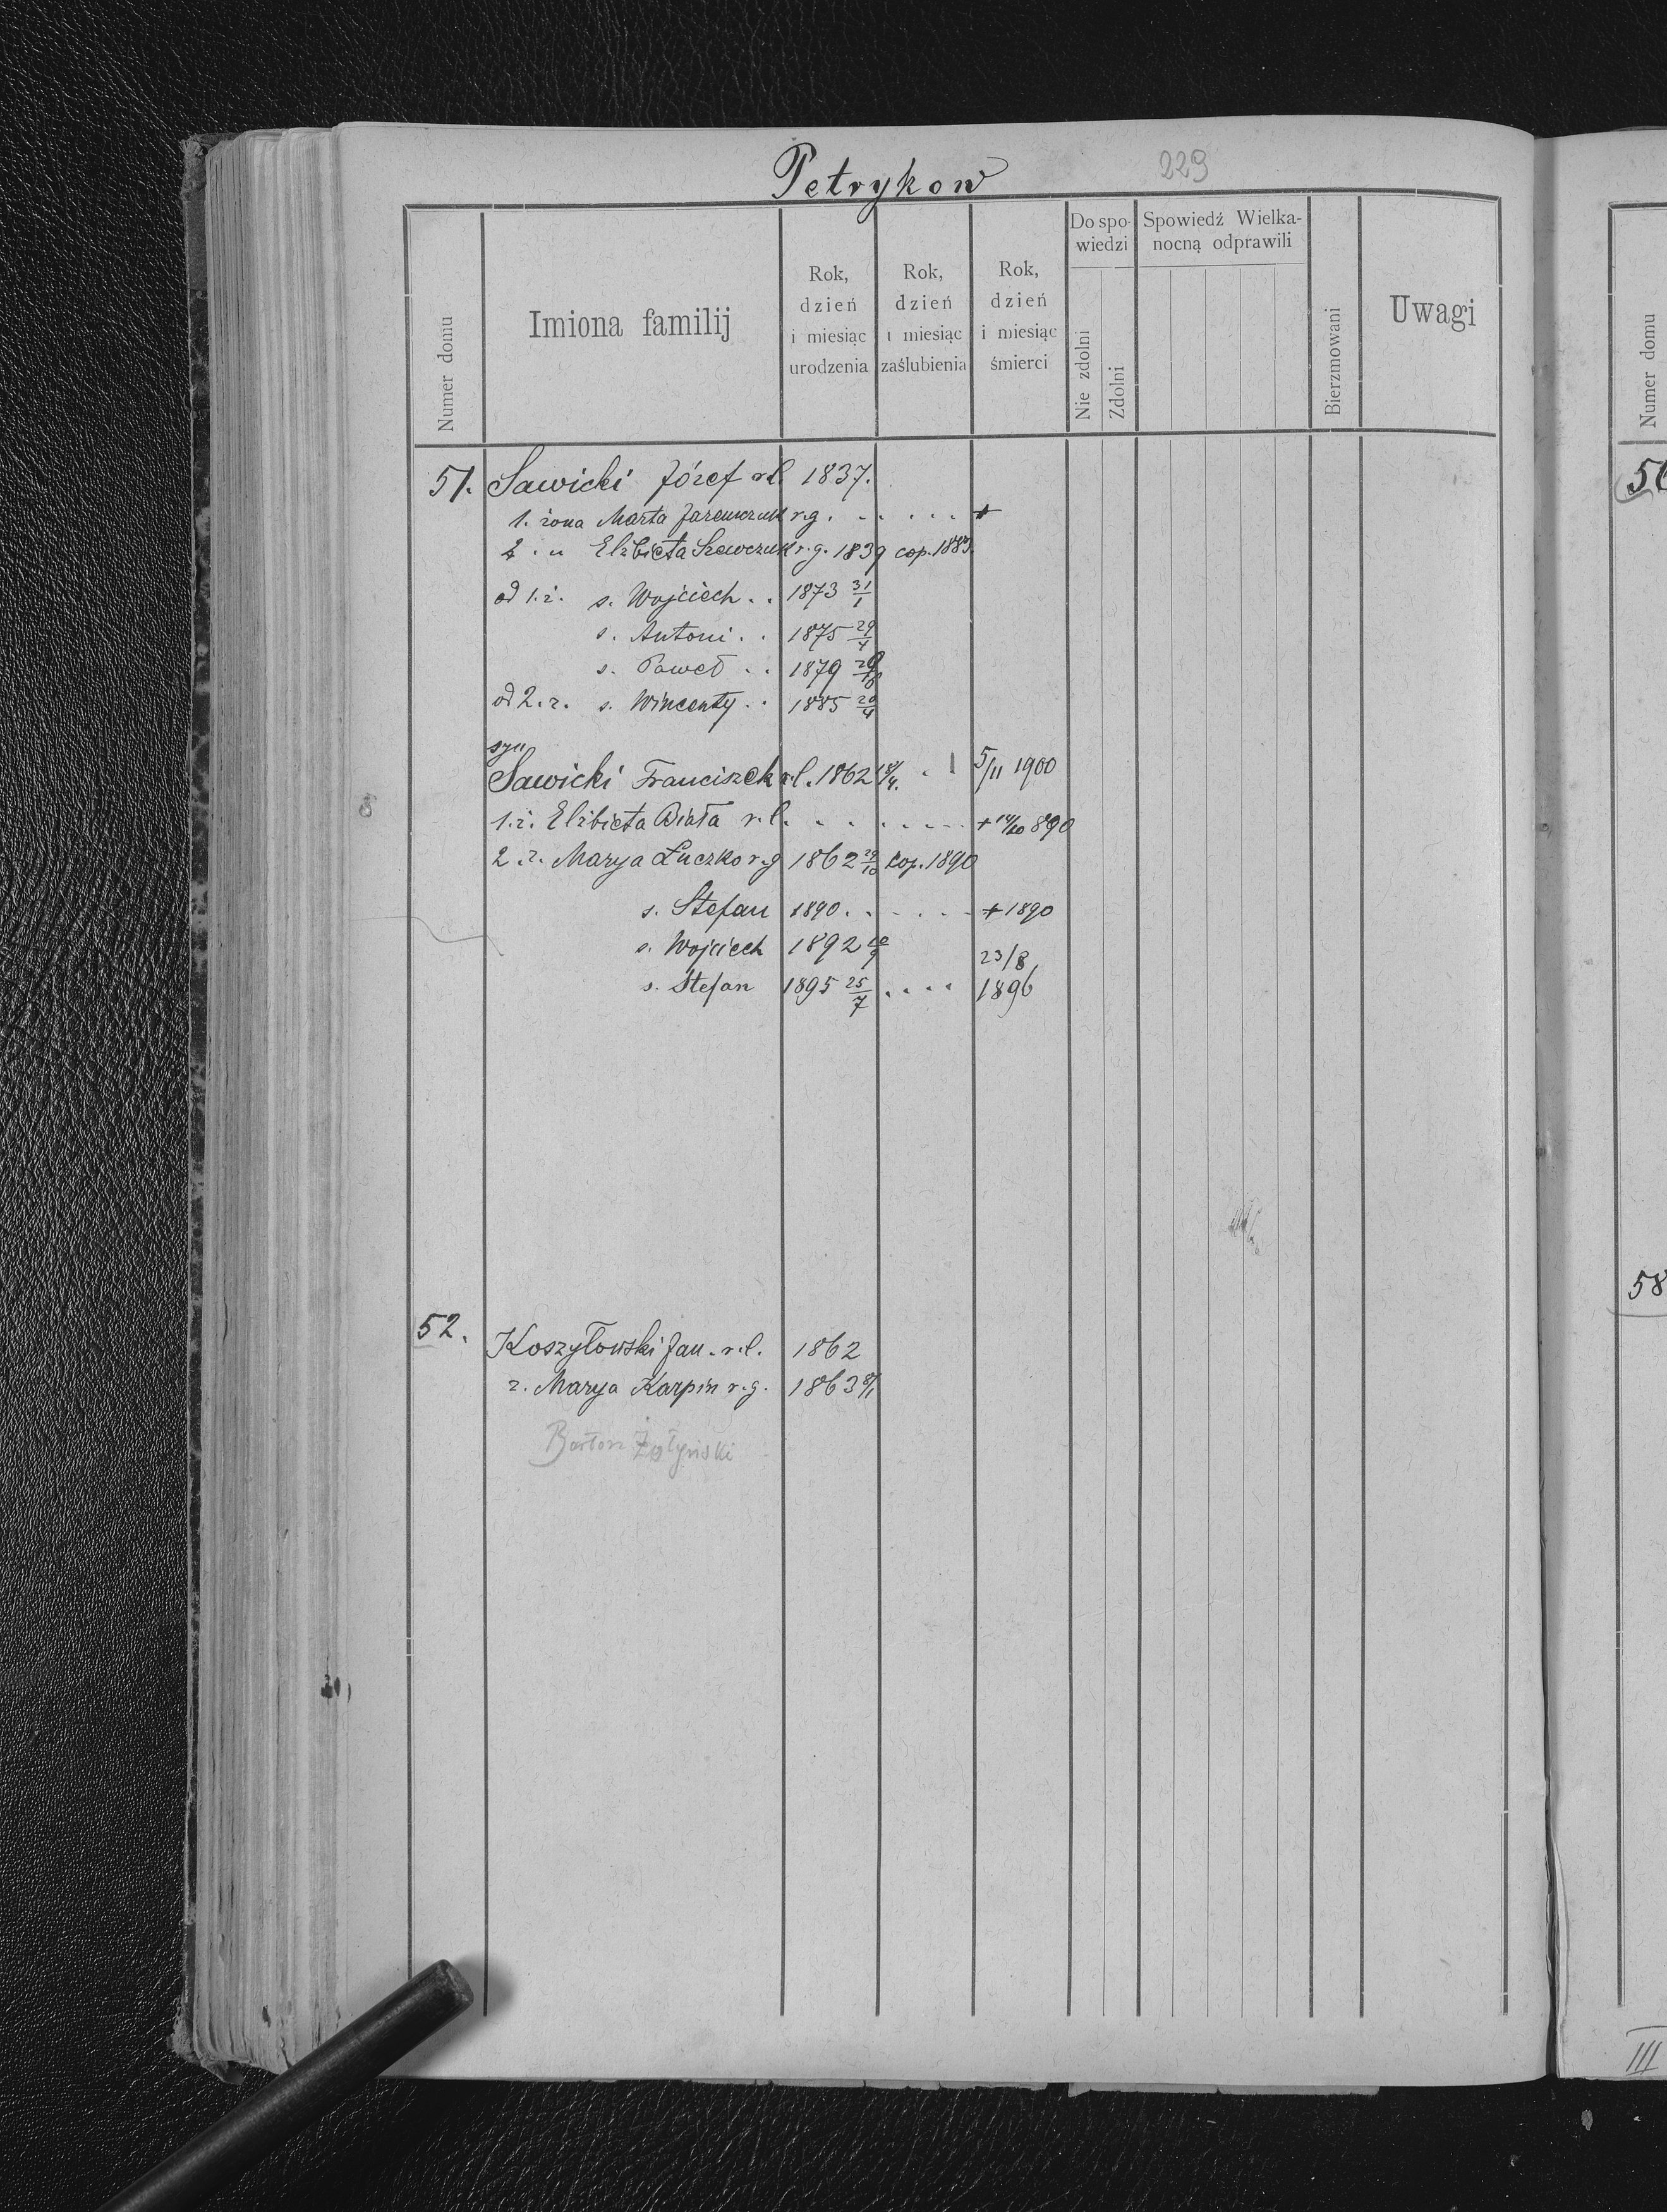 Petrykow 229
Numer domu
Imiona familij
Rok, dzień i miesiąc urodzenia
Rok, dzień i miesiąc zaślubienia
Rok, dzień i miesiąc śmierci
Do spowiedzi
Nie zdolni
Zdolni
Spowiedź Wielkanocną odprawili
Bierzmowani
Uwagi
51. Sawicki Józef r.l. 1837.
1. żona Marta r.g. . . . . . . +
2. " Elżbieta Szewczuk r.g. 1839 cop. 1883
od 1. ż. s. Wojciech . . 1873 31/1
s. Antoni . . 1875 29/4
s. Paweł . . 1879
od 2. ż. s. Wincenty . . 1885 20/4
syn
Sawicki Franciszek r.l. 1862 . 5/11 1900
1. ż. Elżbieta Biała r.l. . . . . . . . + 890
2. ż. Marya Łuczko r.g 1862 29/10 kop. 1890
s. Stefan 1890 . . . . . . + 1890
s. Wojciech 1892
23/8
s. Stefan 1895 25/7 . . . . 1896
52. Koszyłowski Jan . r.l. 1862
ż. Marya Karpin r.g. 1863
Żołyński
Numer domu
58
III